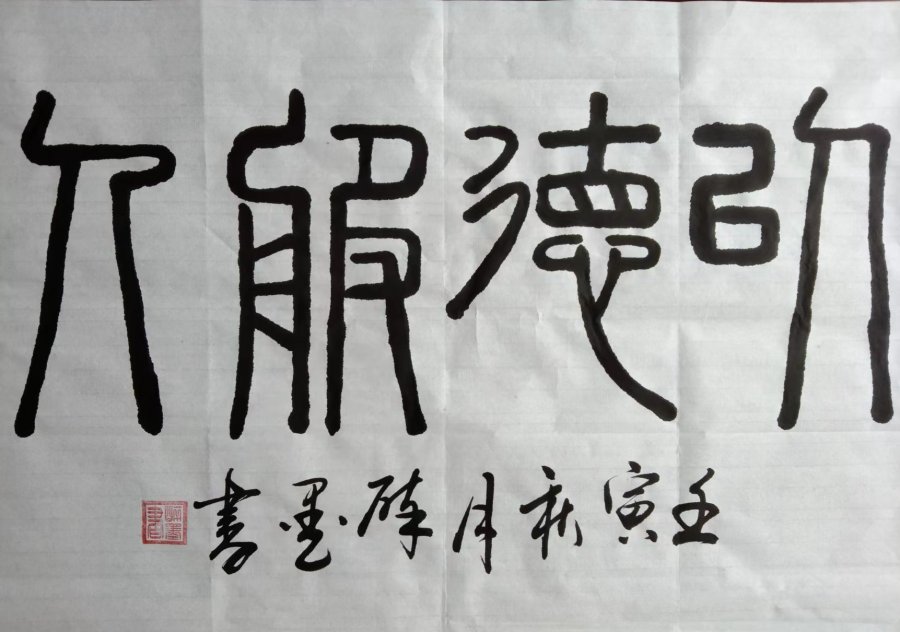 以德服人
壬寅秋月醉墨書